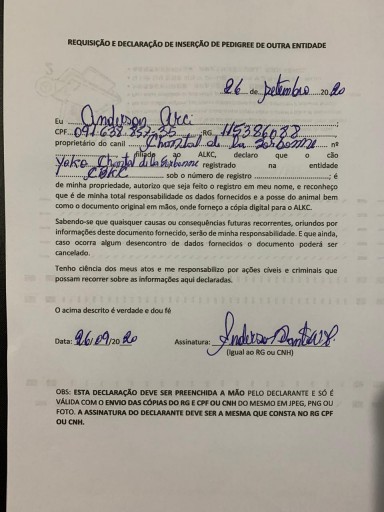 REQUISIÇÃO E DECLARAÇÃO DE INSERÇÃO DE PEDIGREE DE OUTRA ENTIDADE
26 de Setembro 2020
Eu Anderson ;
CPF RG 115386088 ,
proprietário do canil Chantal de la Sorbonne nº
filiado ao ALKC, declaro que o cão
Yoko Chantal de la Sorbonne registrado na entidade
CBKC sob o número de registro ; é
de minha propriedade, autorizo que seja feito o registro em meu nome, e reconheço
que é de minha total responsabilidade os dados fornecidos e a posse do animal bem
como o documento original em mãos, onde forneço a cópia digital para o ALKC.
Sabendo-se que quaisquer causas ou consequências futuras recorrentes, oriundos por
informações deste documento fornecido, serão de minha responsabilidade. E que ainda,
caso ocorra algum desencontro de dados fornecidos o documento poderá ser
cancelado.
Tenho ciência dos meus atos e me responsabilizo por ações cíveis e criminais que
possam recorrer as informações aqui declaradas.
O acima descrito é verdade e dou fé
Data: 26/09/2020 Assinatura: Anderson
(Igual ao RG ou CNH)
OBS: ESTA DECLARAÇÃO DEVE SER PREENCHIDA A MÃO PELO DECLARANTE E SÓ É
VÁLIDA COM O ENVIO DAS CÓPIAS DO RG E CPF OU CNH DO MESMO EM JPEG, PNG OU
FOTO. A ASSINATURA DO DECLARANTE DEVE SER A MESMA QUE CONSTA NO RG CPF
OU CNH.